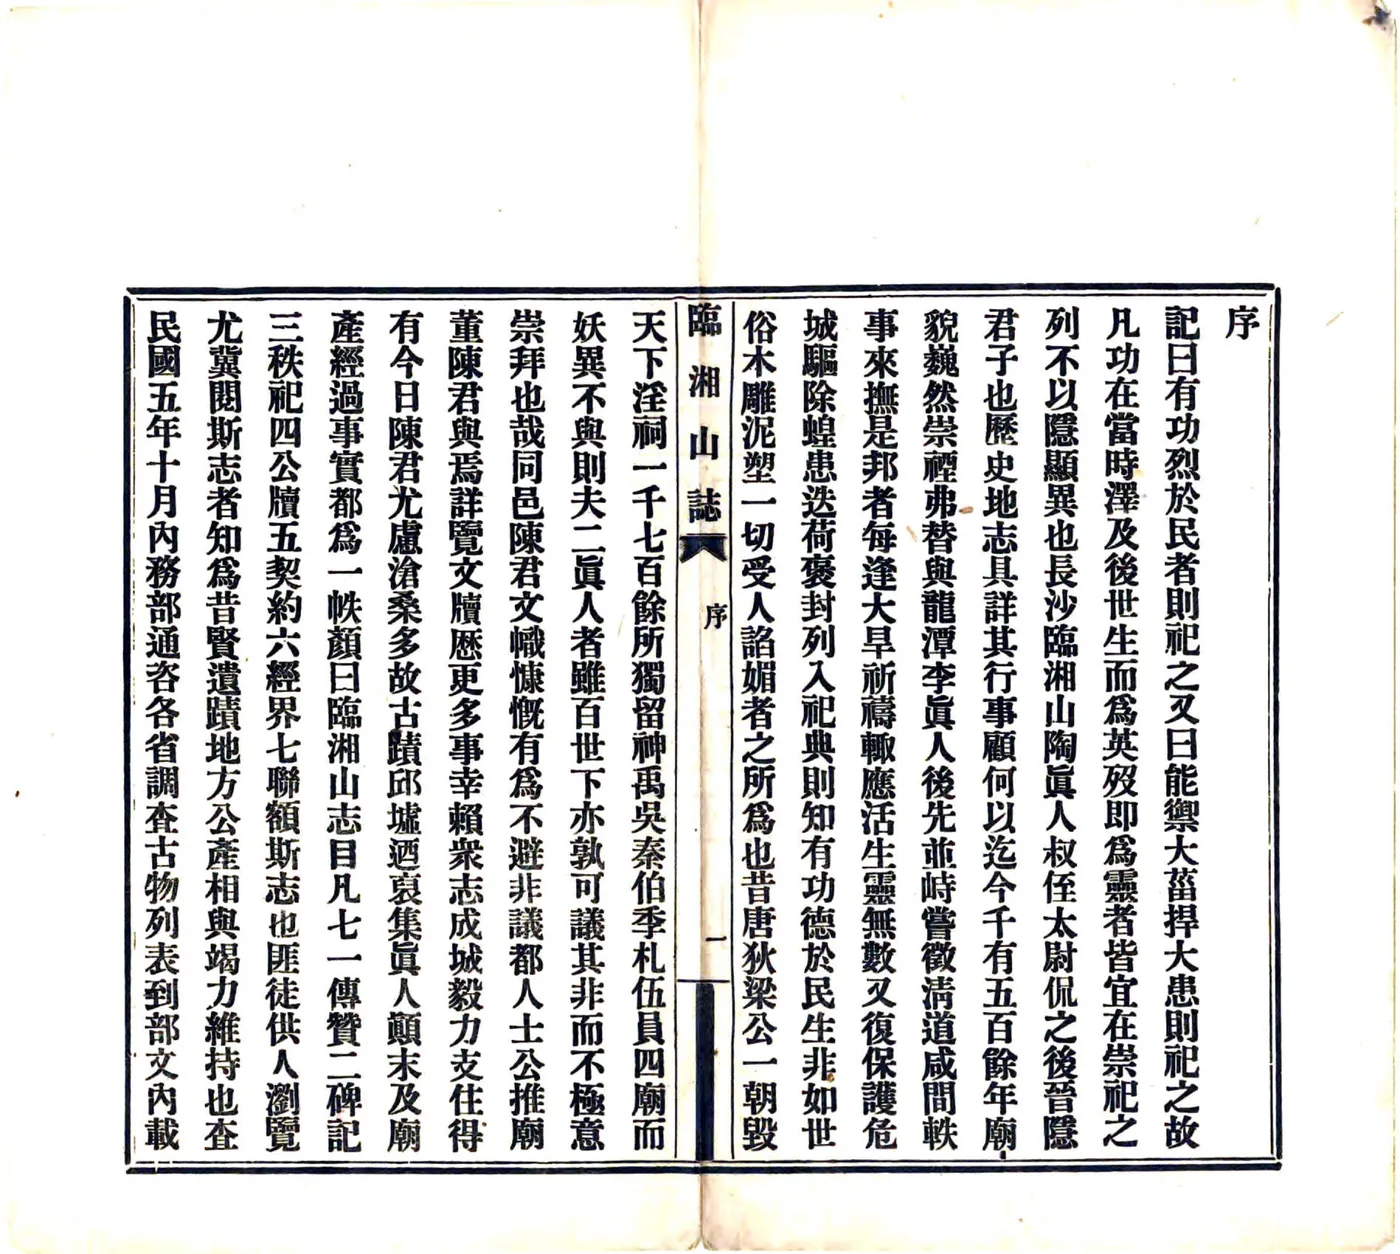 序
記曰有功烈於民者則祀之又曰能禦大菑捍大患則祀之故
凡功在當時澤及後世生而爲英歿即爲靈者皆宜在崇祀之
列不以隱顯異也長沙臨湘山陶眞人叔侄太尉侃之後晉隱
君子也歷史地志具詳其行事顧何以迄今千有五百餘年廟
貌巍然崇禋弗替與龍潭李眞人後先並峙嘗徵淸道咸間軼
事來撫是邦者每逢大旱祈禱輙應活生靈無數又復保護危
城驅除蝗患迭荷褒封列入祀典則知有功德於民生非如世
俗木雕泥塑一切受人諂媚者之所爲也昔唐狄梁公一朝毀
臨湘山誌
序
一
天下淫祠一千七百餘所獨留神禹吳泰伯季札伍員四廟而
妖異不與則夫二眞人者雖百世下亦孰可議其非而不極意
崇拜也哉同邑陳君文幟慷慨有爲不避非議都人士公推廟
董陳君與焉詳覽文牘歷更多事幸賴衆志成城毅力支住得
有今日陳君尤慮滄桑多故古蹟邱墟迺裒集眞人顚末及廟
產經過事實都爲一帙顏曰臨湘山志目凡七一傳贊二碑記
三秩祀四公牘五契約六經界七聯額斯志也匪徒供人瀏覽
尤冀閱斯志者知爲昔賢遺蹟地方公產相與竭力維持也查
民國五年十月內務部通咨各省調查古物列表到部文內載